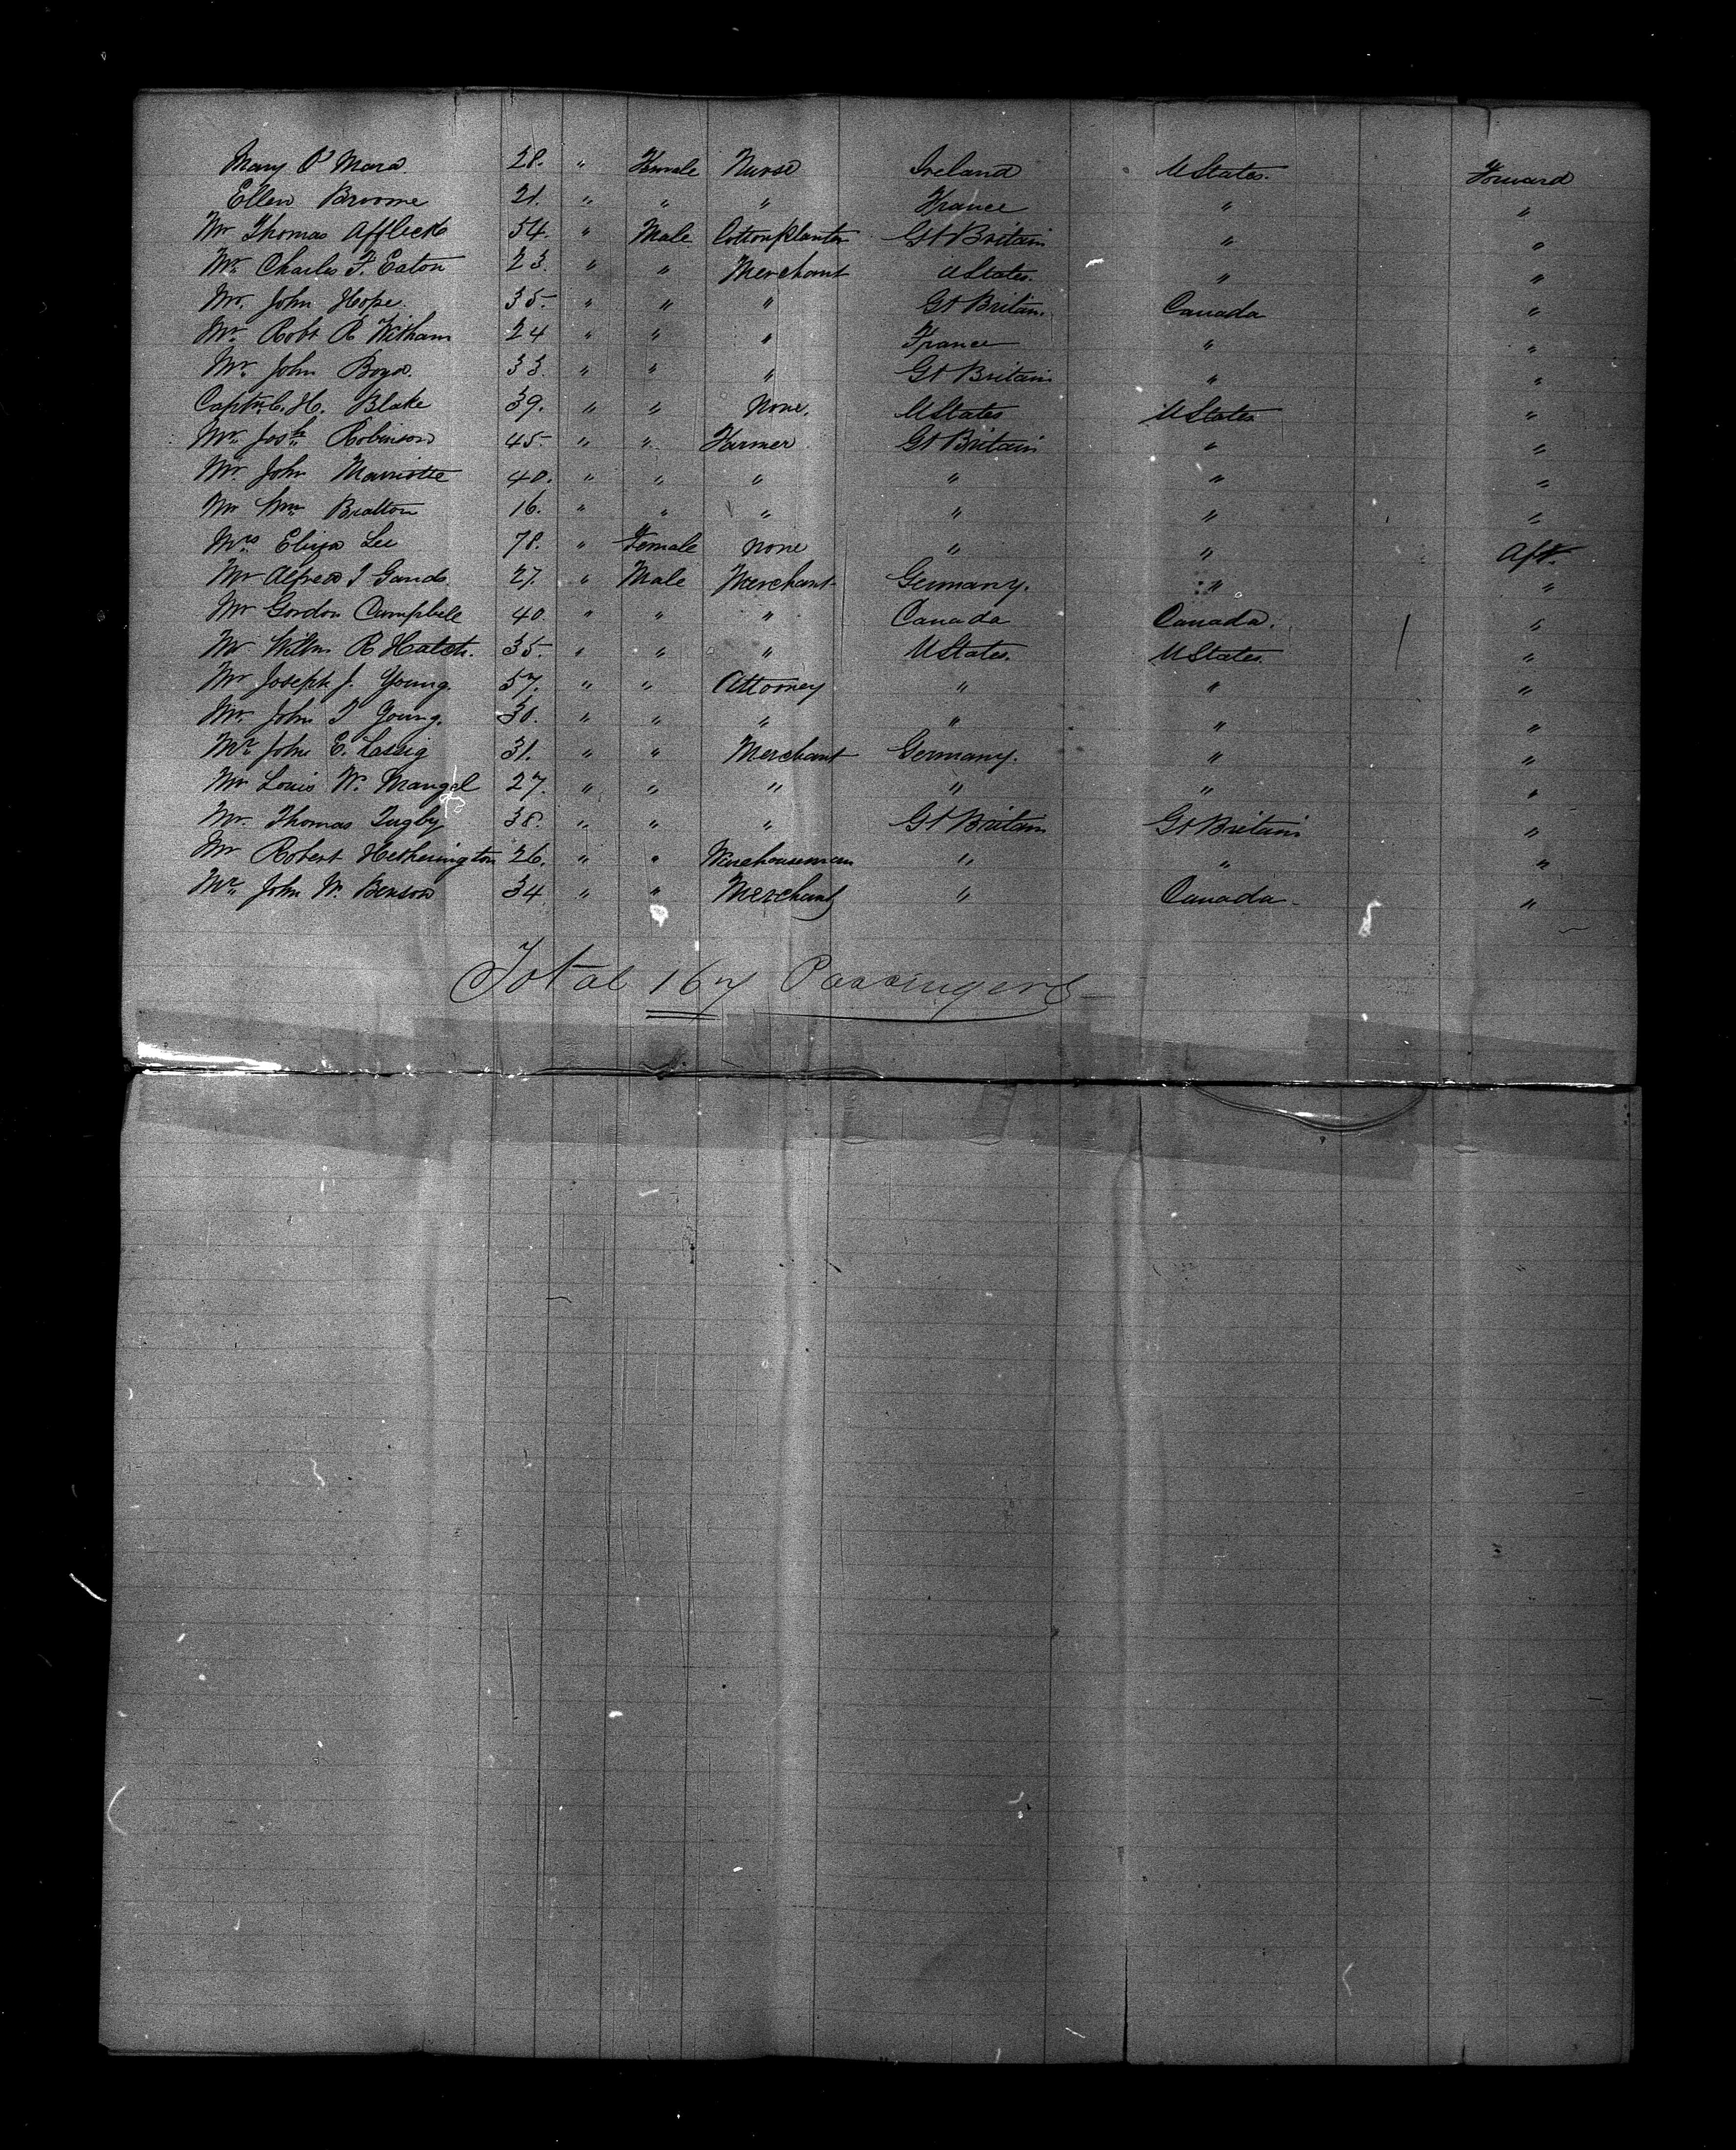 Mary O'Mara. 28. " Female Nurse Ireland UStates. Forward
Ellen Broome 21. " " " France " "
Mr Thomas Affleck 54. " Male Cottonplanter Gt Britain " "
Mr. Charles F. Eaton 23. " " Merchant UStates. " "
Mr. John Hope. 35. " " " Gt Britain. Canada "
Mr. Robt R Witham 24 " " " France " "
Mr. John Boyd. 33. " " " Gt Britain " "
Captn C. H. Blake 39. " " None. UStates UStates "
Mr. Josh Robinson 45. " " Farmer Gt Britain " "
Mr. John Marriotte 40. " " " " " "
Mr Wm Bratton 16. " " " " " "
Mrs Eliza Lee 78. " Female None " " Aft.
Mr Alfred 27. " Male Merchant Germany. " "
Mr Gordon Campbell 40. " " " Canada Canada. "
Mr Willm R Hatch. 35. " " " UStates. UStates. "
Mr Joseph J. Young. 57. " " Attorney " " "
Mr. John T Young. 30. " " " " " "
Mr. John E. 31. " " Merchant Germany. " "
Mr Louis W. Mangel 27. " " " " " "
Mr. Thomas Tugby 38. " " " Gt Britain Gt Britain "
Mr Robert Hetherington 26. " " Warehouseman " " "
Mr. John W. Benson 34. " " Merchant " Canada "
Total 167 Passengers